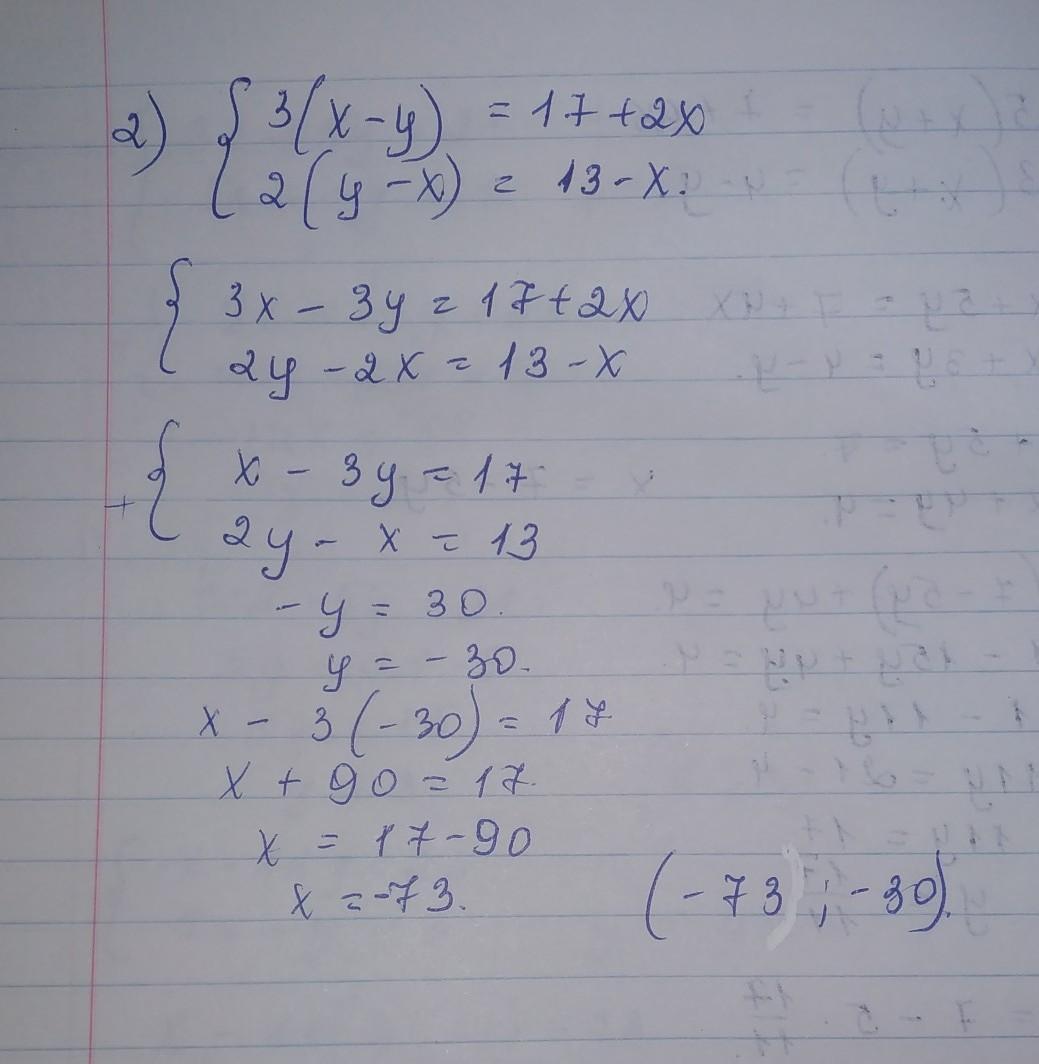 2) { 3(x-y) = 17+2x
2(y-x) = 13-x.
{ 3x - 3y = 17+2x
2y - 2x = 13-x
+ { x - 3y = 17
2y - x = 13
-y = 30.
y = -30.
x - 3(-30) = 17
x + 90 = 17.
x = 17-90
x = -73.
(-73 ; -30).